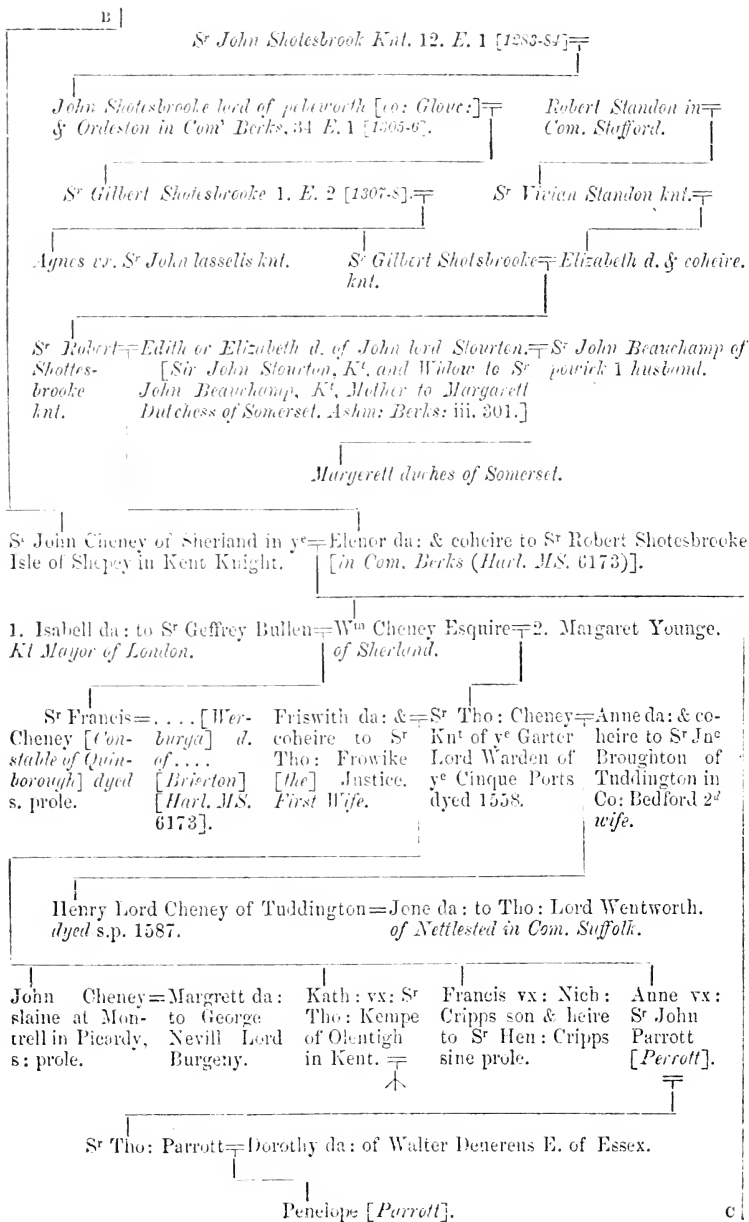 B
Sʳ John Shotesbrook Knt. 12. E. 1 [1283-84]
John Shotesbrooke lord of pebworth [co: Glouc:]
& Ordeston in Com' Berks, 34 E. 1 [1305-6].
Robert Standon in
Com. Stafford.
Sʳ Gilbert Shotesbrooke 1. E. 2 [1307-8].
Sʳ Vivian Standon knt.
Agnes vx. Sʳ John lassells knt.
Sʳ Gilbert Shotsbrooke
knt.
Elizabeth d. & coheire.
Sʳ Robert
Shottes-
brooke
knt.
Edith or Elizabeth d. of John lord Stourton.
[Sir John Stourton, Kᵗ. and Widow to Sʳ
John Beauchamp, Kᵗ, Mother to Margarett
Dutchess of Somerset. Ashm: Berks: iii. 301.]
Sʳ John Beauchamp of
powick 1 husband.
Margerett duches of Somerset.
Sʳ John Cheney of Sherland in yᵉ
Isle of Shepey in Kent Knight.
Elenor da: & coheire to Sʳ Robert Shotesbrooke
[in Com. Berks (Harl. MS. 6173)].
1. Isabell da: to Sʳ Geffrey Bullen
Kt Mayor of London.
Wᵐ Cheney Esquire
of Sherland.
2. Margaret Younge.
Sʳ Francis
Cheney [Con-
stable of Quin-
borough] dyed
s. prole.
. . . . [Wer-
burga] d.
of . . . .
[Brierton]
[Harl. MS.
6173].
Friswith da: &
coheire to Sʳ
Tho: Frowike
[the] Justice.
First Wife.
Sʳ Tho: Cheney
Knᵗ of yᵉ Garter
Lord Warden of
yᵉ Cinque Ports
dyed 1558.
Anne da: & co-
heire to Sʳ Jnᵒ
Broughton of
Tuddington in
Co: Bedford 2ᵈ
wife.
Henry Lord Cheney of Tuddington
dyed s.p. 1587.
Jone da: to Tho: Lord Wentworth.
of Nettlested in Com. Suffolk.
John Cheney
slaine at Mon-
trell in Picardy,
s: prole.
Margrett da:
to George
Nevill Lord
Burgeny.
Kath: vx: Sʳ
Tho: Kempe
of Olentigh
in Kent.
Francis vx: Nich:
Cripps son & heire
to Sʳ Hen: Cripps
sine prole.
Anne vx:
Sʳ John
Parrott
[Perrott].
Sʳ Tho: Parrott
Dorothy da: of Walter Deuereus E. of Essex.
Penelope [Parrott].
C